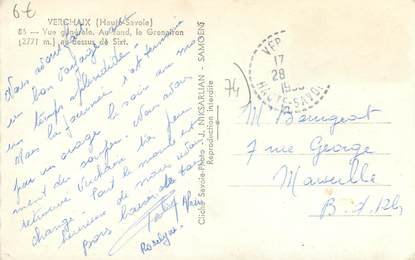 6€
VERCHAIX (Haute-Savoie)
85 — Vue générale. Au fond, le Grenairon
(2771 m.) au-dessus de Sixt.
Nous avons fait
un bon voyage avec
un temps splendide
dans la journée s'est terminé
par un orage le soir au mo
ment du souper. Nous avons
retrouvé Verchaix un peu
changé. Tout le monde est
heureux de nous
bons baisers de tous
Roselyne
Cliché Savoie-Photo - J. NIKSARLIAN - SAMOENS
Reproduction interdite
74
17
28
HAUTE-SAVOIE
M Bourgeat
7 rue George
Marseille
B. d. Rh